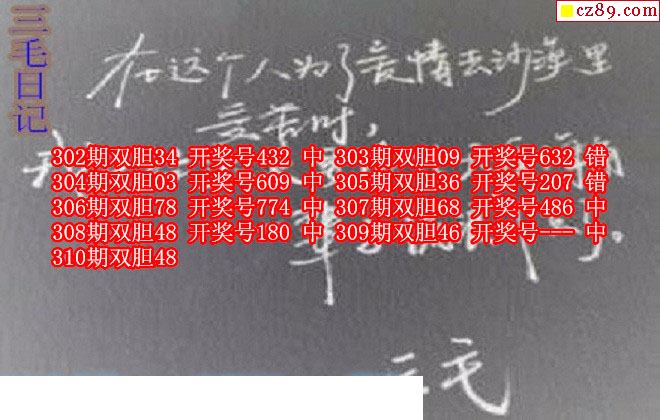 cz89.com
三毛日记
在这个人为了爱情去沙漠里
受苦时，
302期双胆34 开奖号432 中 303期双胆09 开奖号632 错
304期双胆03 开奖号609 中 305期双胆36 开奖号207 错
306期双胆78 开奖号774 中 307期双胆68 开奖号486 中
308期双胆48 开奖号180 中 309期双胆46 开奖号--- 中
310期双胆48
三毛